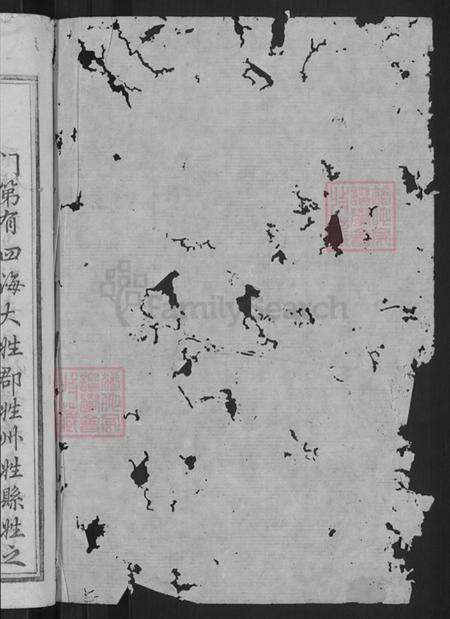 門第有四海大姓郡姓州姓縣姓之
FamilySearch